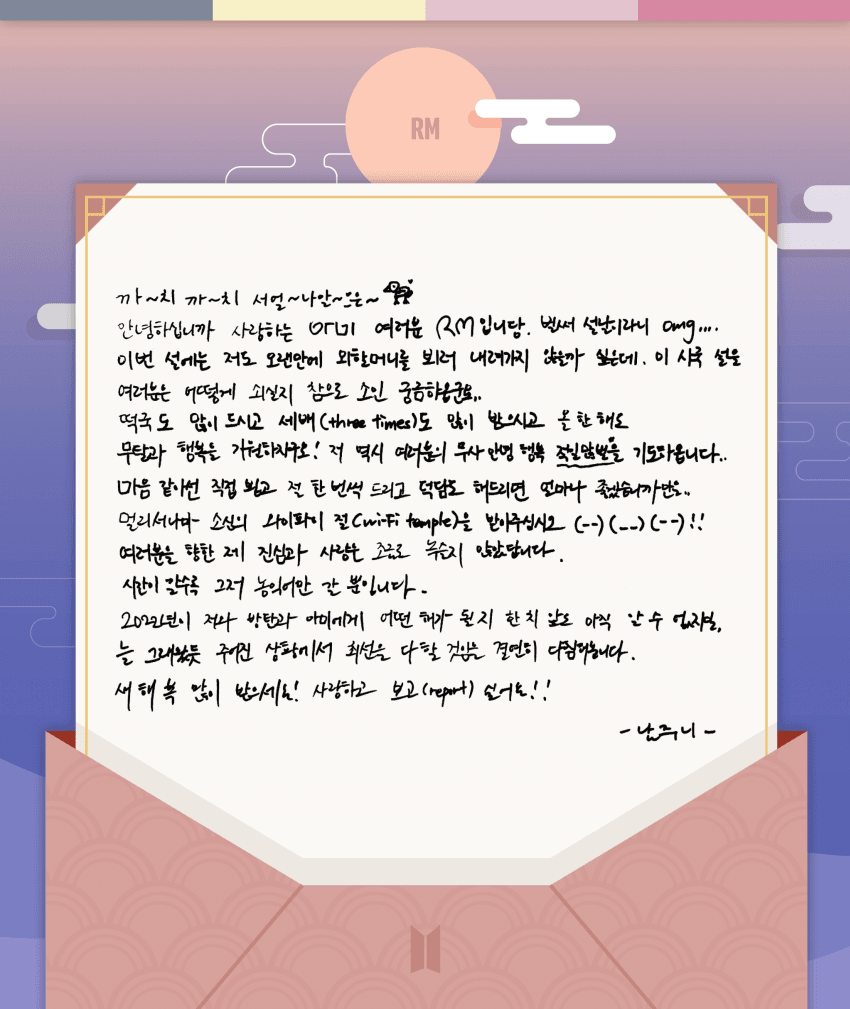 RM
까~치 까~치 서얼~나알~으은~
안녕하십니까 사랑하는 아미 여러분 RM입니당. 벌써 설날이라니 omg....
이번 설에는 저도 오랜만에 외할머니를 뵈러 내려가지 않을까 싶은데. 이 시국 설을
여러분은 어떻게 쇠실지 참으로 소인 궁금하옵군요..
떡국도 많이 드시고 세배(three times)도 많이 받으시고 올 한 해도
무탈과 행복을 기원하자구요! 저 역시 여러분의 무사 안녕 행복 을 기도하옵니다..
마음 같아선 직접 뵙고 절 한 번씩 드리고 덕담도 해드리면 얼마나 좋겠습니까만은..
멀리서나마 소심의 와이파이 절(wi-fi temple)을 받아주십시오 (--)(__)(--)!!
여러분을 향한 제 진심과 사랑은 조금도 녹슬지 않았답니다.
시간이 갈수록 그저 농익어만 갈 뿐입니다.
2022년이 저와 방탄과 아미에게 어떤 해가 될지 한 치 앞도 아직 알 수 없지만,
늘 그래왔듯 주어진 상황에서 최선을 다할 것임은 결연히 다짐하옵니다.
새해 복 많이 받으세요! 사랑하고 보고(report) 싶어요!!
- 남주니 -